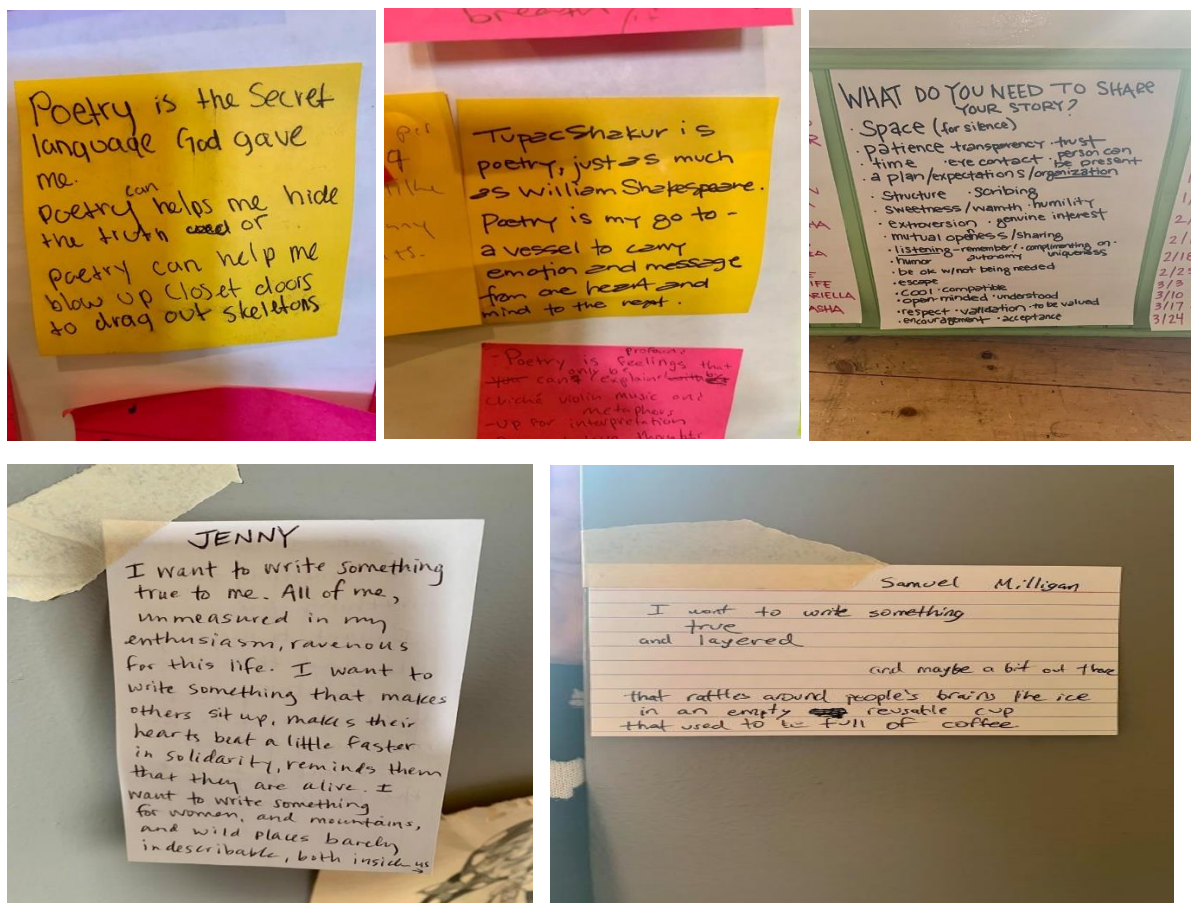 Poetry is the Secret
language God gave
me.
can
poetry helps me hide
the truth or
poetry can help me
blow up closet doors
to drag out skeletons
breath
per
Tupac Shakur is
poetry, just as much
as William Shakespeare.
Poetry is my go to -
a vessel to carry
emotion and message
from one heart and
mind to the next.
profound
- Poetry is feelings that
only be
you can explain by
cliché violin music and
metaphors
- Up for interpretation
thoughts
WHAT DO YOU NEED TO SHARE
YOUR STORY?
· Space (for silence)
· patience transparency · trust
· time · eye contact · person can
be present
· a plan/expectations/organization
· Structure · Scribing
· sweetness/warmth · humility
· extroversion · genuine interest
· mutual openess/sharing
· listening - remember! · complimenting on
uniqueness
· humor autonomy
· be ok w/not being needed
· escape
· cool · compatible
· open-minded · understood
· respect · validation · to be valued
· encouragement · acceptance
IFE
ARIELLA
ASHA
2/18
3/3
3/10
3/17
3/24
JENNY
I want to write something
true to me. All of me,
unmeasured in my
enthusiasm, ravenous
for this life. I want to
write something that makes
others sit up, makes their
hearts beat a little faster
in solidarity, reminds them
that they are alive. I
want to write something
for women, and mountains,
and wild places barely
indescribable, both inside us
→
Samuel Milligan
I want to write something
true
and layered
and maybe a bit out there
that rattles around people's brains like ice
in an empty reusable cup
that used to be full of coffee